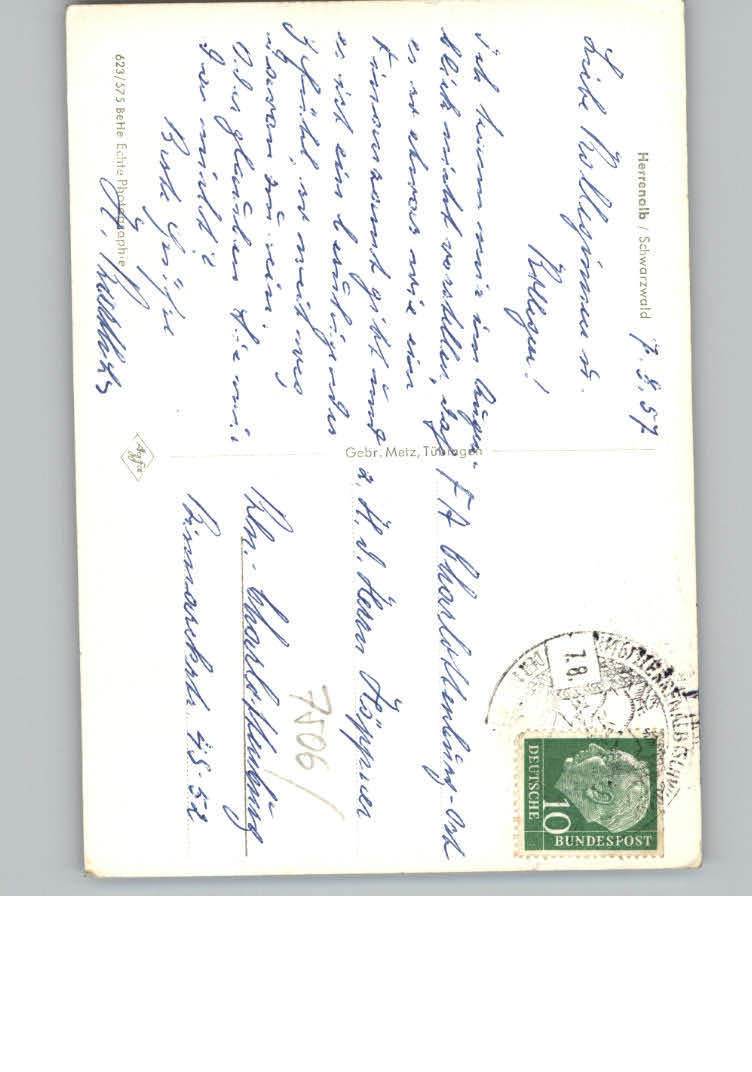 Herrenalb / Schwarzwald
7.8.57
Liebe Kolleginnen u.
Kollegen!
Ich kann mir im Augen-
blick nicht vorstellen, daß
es so etwas wie ein
Finanzamt gibt und
es ist ein beruhigendes
Gefühl, so weit weg
davon zu sein.
Oder glauben Sie mir
das nicht?
Beste Grüße
623/575 BeHe Echte Photographie
Agfa
Gebr. Metz, Tübingen
FA Charlottenburg-Ost
z. H. d. Herrn Höppner
Bln.-Charlottenburg
Bismarckstr. 48-52
7506/
7.8.
HERRENALB
DEUTSCHE
10
BUNDESPOST